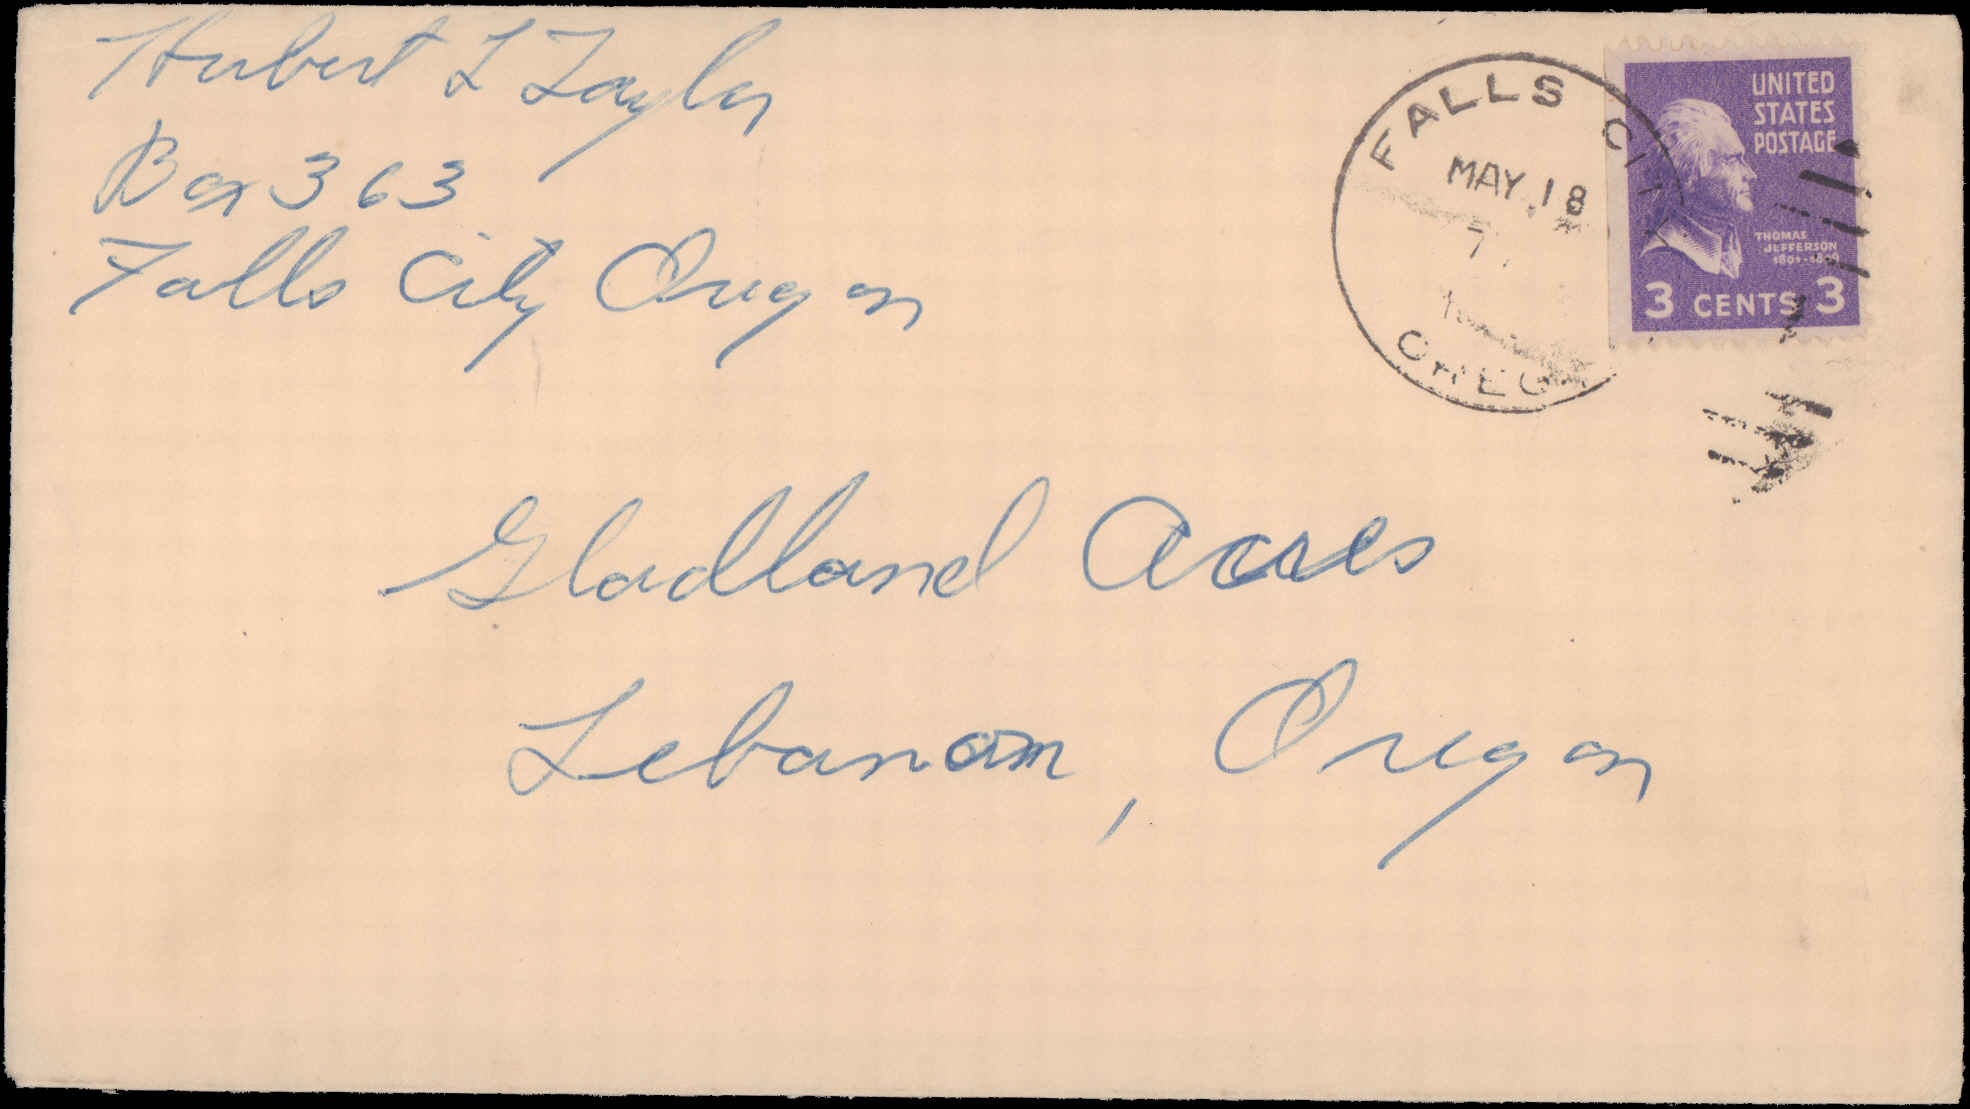 Herbert L Taylor
Box 363
Falls City Oregon
FALLS CITY
MAY 18
7
OREG
UNITED
STATES
POSTAGE
THOMAS
JEFFERSON
1801-1809
3 CENTS 3
Gladland Acres
Lebanon, Oregon